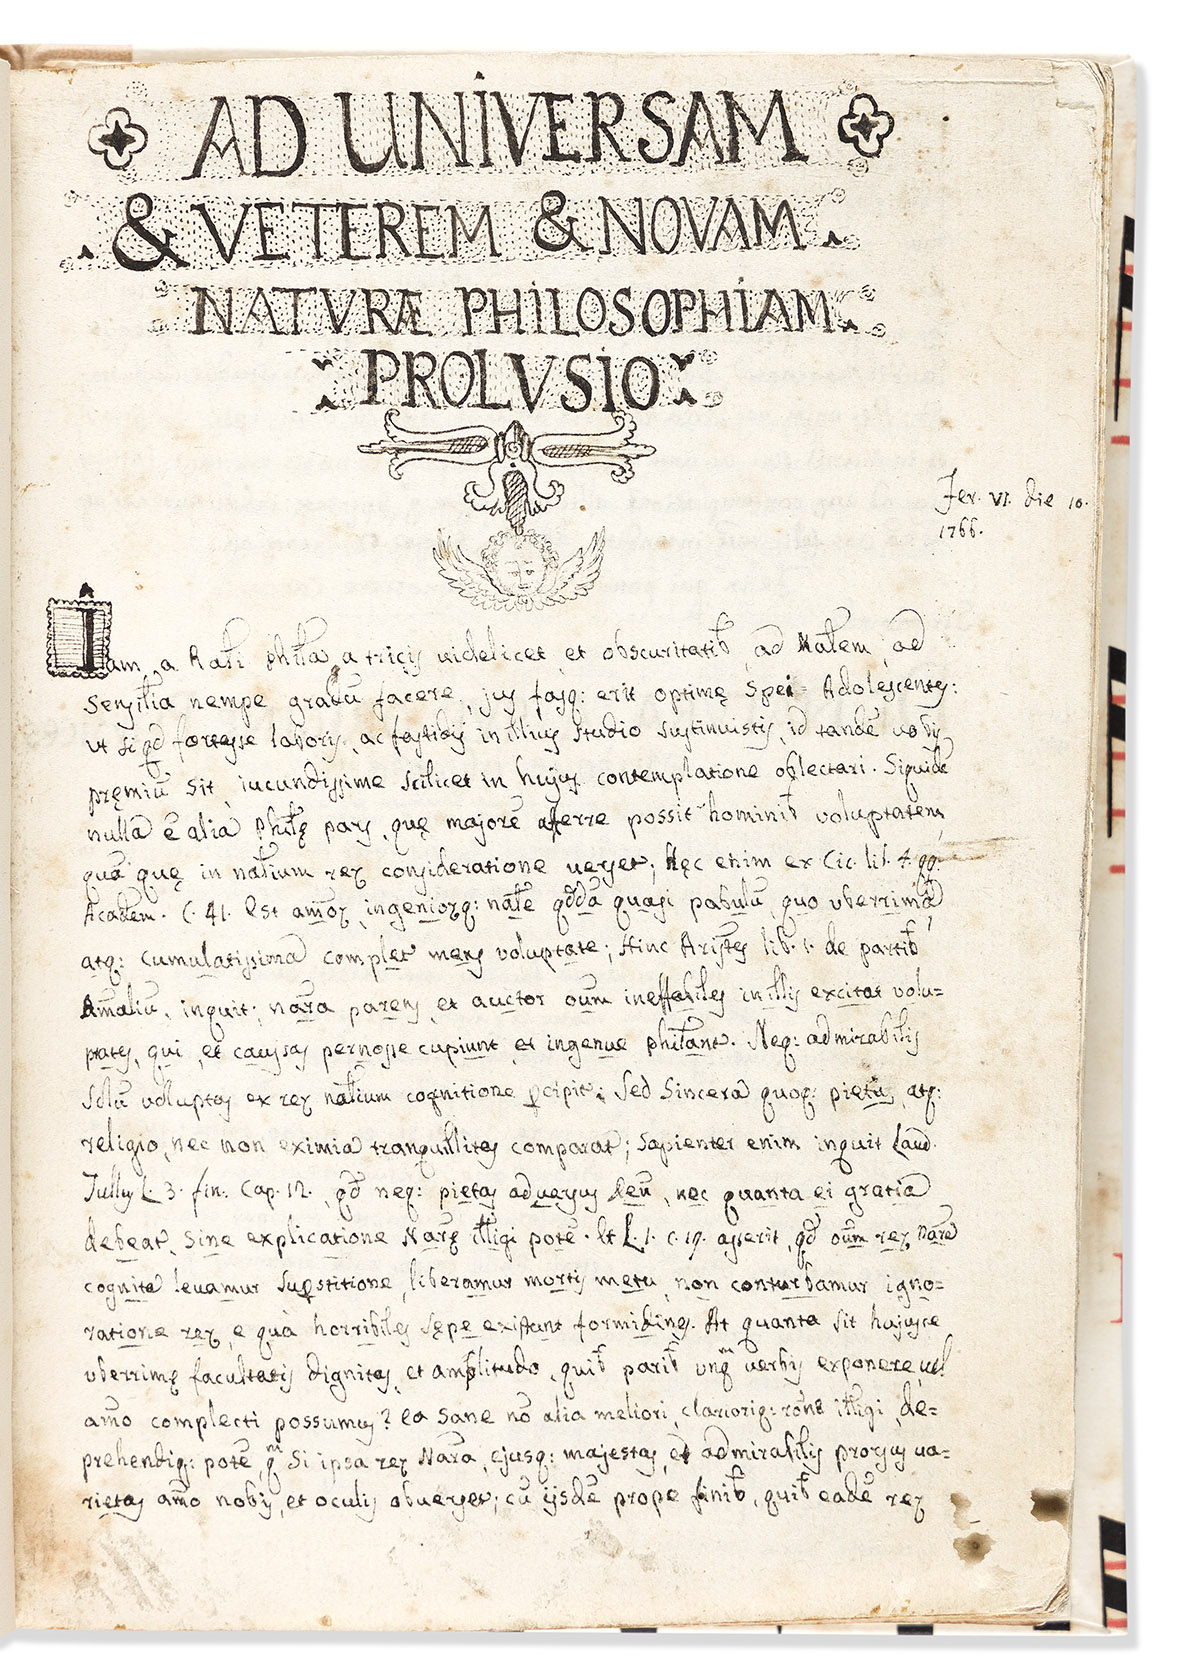 AD UNIVERSAM
& VETEREM & NOVAM
NATVRÆ PHILOSOPHIAM
PROLVSIO
Fer. VI. die 10.
1766.
Iam a Rãli phĩla a tricis videlicet et obscuritatib, ad Nalem, ad
Sensilia nempe gradũ facere, jus fasq: erit optimę Spei Adolescentes:
vt siqd fortasse laboris, ac fastidij in illius studio sustinuistis, id tandẽ vobis
pręmiũ sit, iucundissime scilicet in hujus contemplatione oblectari. Siquidẽ
nullã ẽ alia philę pars, quę majorẽ afferre possit hominib voluptatem,
quã quę in nãlium rerꝫ consideratione versat; Hęc enim ex Cic. lib. 4. qq.
Academ. C. 41. Est amõꝫ ingenioꝝq: nãle qddã quasi pabulũ, quo vberrimã
atq: cumulatissimã complet mens voluptate; Hinc Aristes lib. 1. de partib
Amaliũ, inquit; nãra parens, et auctor oum ineffabiles in illis excitat volu=
ptates, qui, et caussas pernosse cupiunt et ingenue philant. Neq: admirabilis
Solũ voluptas ex reꝝ nãlium cognitione ꝑcipit; Sed Sincerã quoq: pietas, atq:
religio, nec non eximia tranquillitas comparat; Sapienter enim inquit Laud.
Tullius L. 3. fin. Cap. 12., qd neq: pietas adversus Deũ, nec quanta ei gratia
debeat, sine explicatione Narę illigi potẽ. Et L. 1. C. 19. asserit, qd oum reꝝ Nare
cognita levamur supstitione, liberamur mortis metu, non conturbamur igno=
ratione reꝝ, e quà horribiles sępe existunt formidines. At quanta sit hujusce
vberrimę facultatis dignitas, et amplitudo, quib parib vnq verbis exponere, vel
amo complecti possumus? ea sane nõ alia meliori, clariorigq: rone illigi, de=
prehendiq: potẽ, q Si ipsa reꝝ Nara, ejusq: majestas, et admirabilis prorsus va=
rietas amo nobis, et oculis obverset; cũ ijsdẽ prope finib, quib eadẽ reꝝ